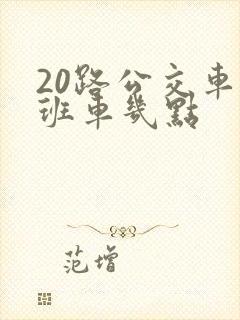 20路公交車
班車幾點
范增